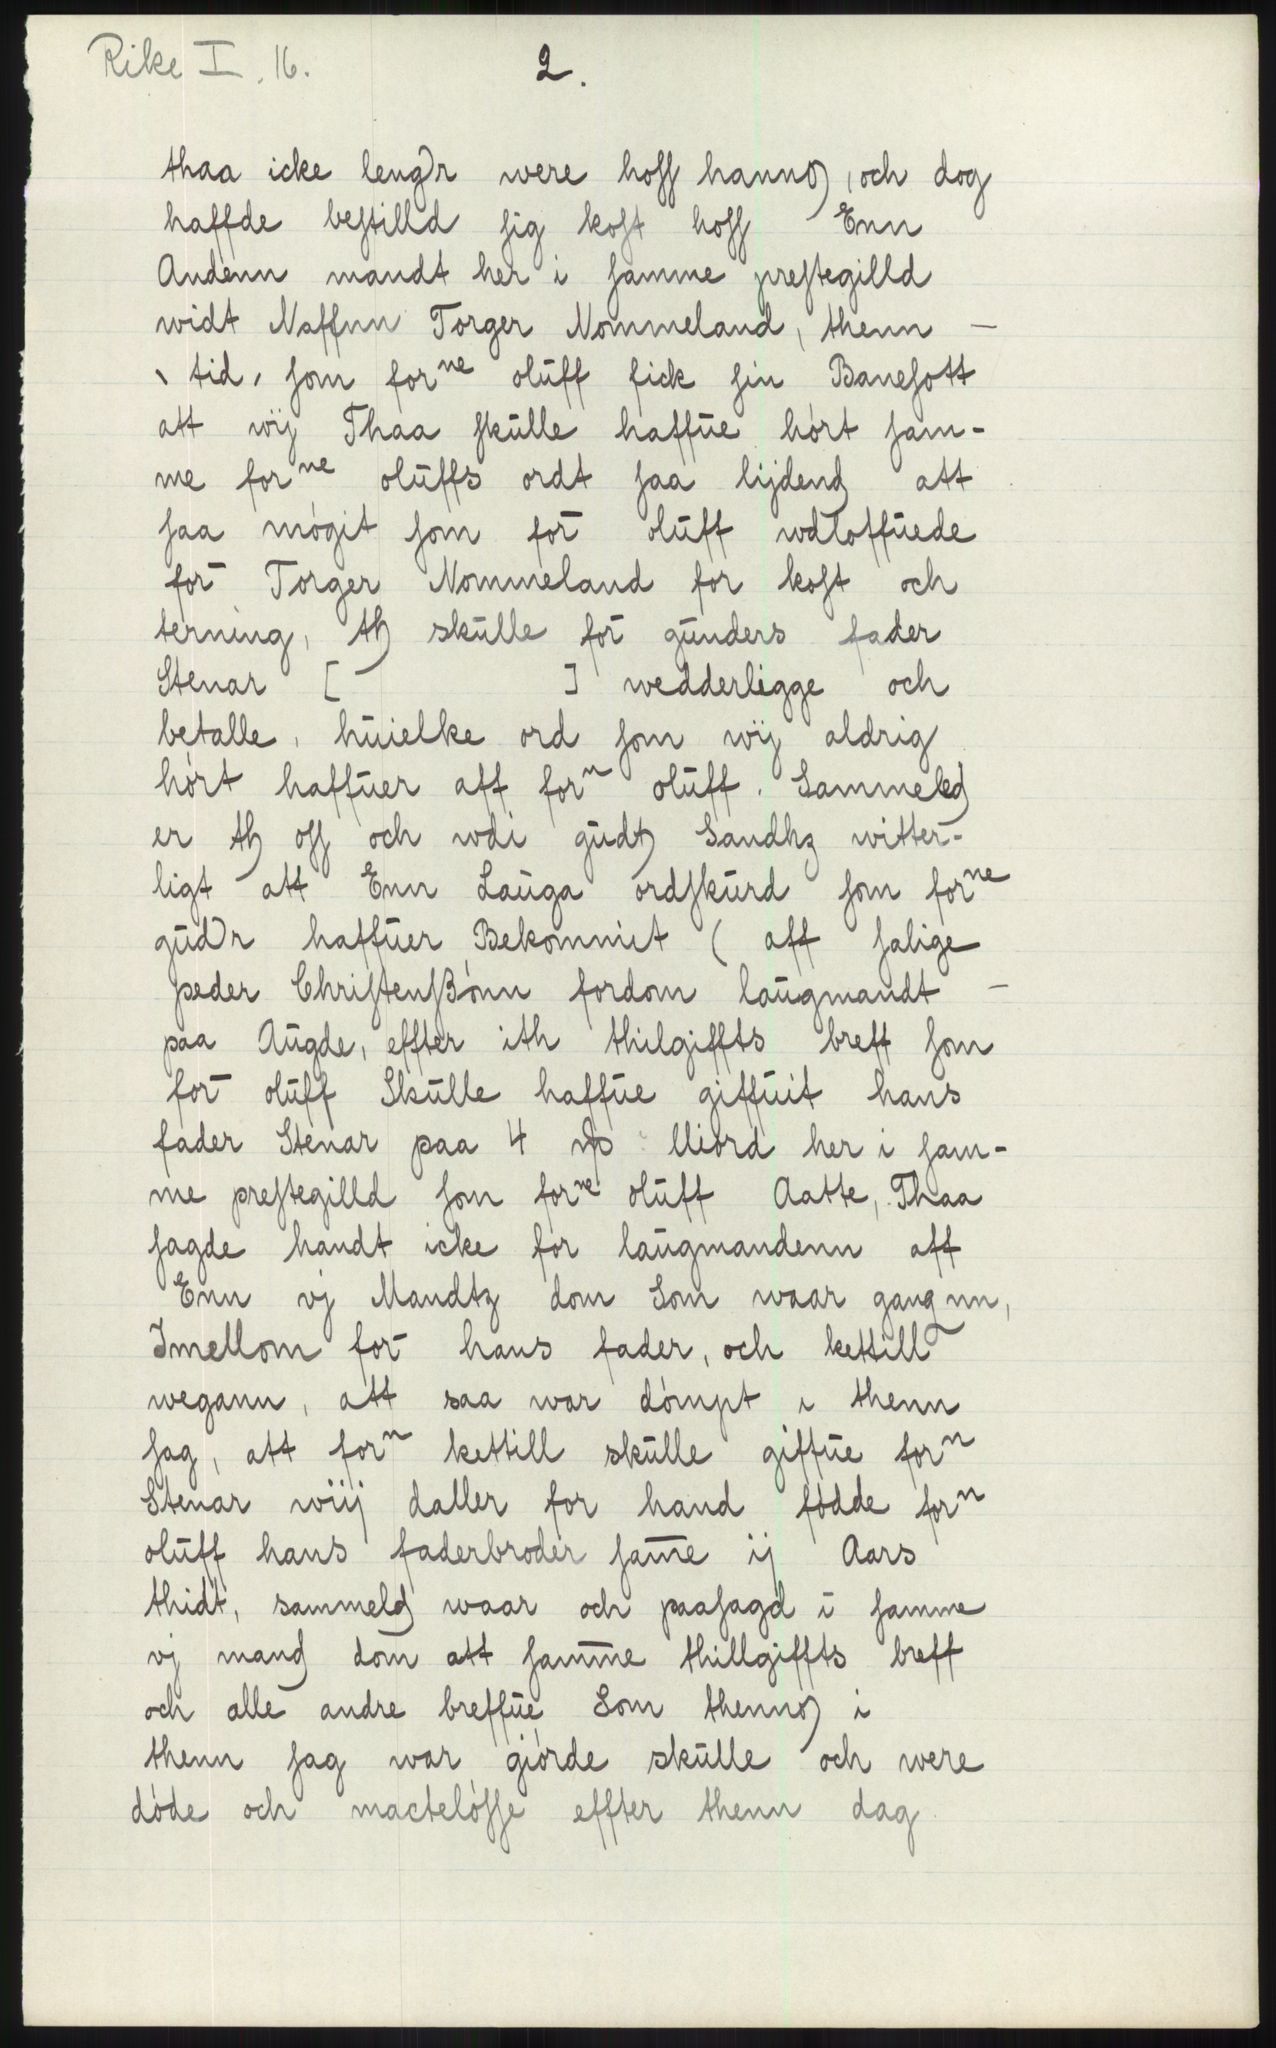 Rike I. 16.
2.
thaa icke lengr were hoſſ hannō, och dog
haffde beſtilld ſig koſt hoſſ Enn
Andenn mandt her i ſamme preſtegilld
widt Naffnn Torger Nommeland, thenn —
tid, ſom forne oluff fick ſin Baneſott
att wij Thaa ſkulle haffue hórt ſam-
me forne oluffs ordt ſaa lijdend att
ſaa mógit ſom for̄ oluff wdloffuede
for̄ Torger Nommeland for koſt och
terning, th skulle for̄ gunders fader
Stenar [ ] wedderligge och
betalle, huielke ord ſom wij aldrig
hórt haffuer aff forn oluff. Sammeled
er th oſſ och wdi gudt Sandhz witter-
ligt att Enn Lauga ordſkurd ſom forne
gudr haffuer Bekommet ( aff ſalige
peder Chriſtenſßónn fordom laugmandt —
paa Augde, effter ith thilgiffts breff ſom
for̄ oluff Skulle haffue giffuit hans
fader Stenar paa 4 Uiórd her i ſam-
me preſtegilld ſom forne oluff Aatte, Thaa
ſagde handt icke for laugmandenn aff
Enn vj Mandtz dom Som waar gangnn,
Imellom for̄ hans fader, och kettill
wegann, att saa war dómpt i thenn
ſag, att forn kettill skulle giffue forn
Stenar wiij daller for hand fódde forn
oluff hans faderbroder ſam̄e ij Aars
thidt, sammeld waar och paaſagd i ſamme
vj mand dom att ſam̄me thillgiffts breff
och alle andre breffue Som thennō i
thenn ſag war giórde skulle och were
dóde och macteló́ſſe effter thenn dag